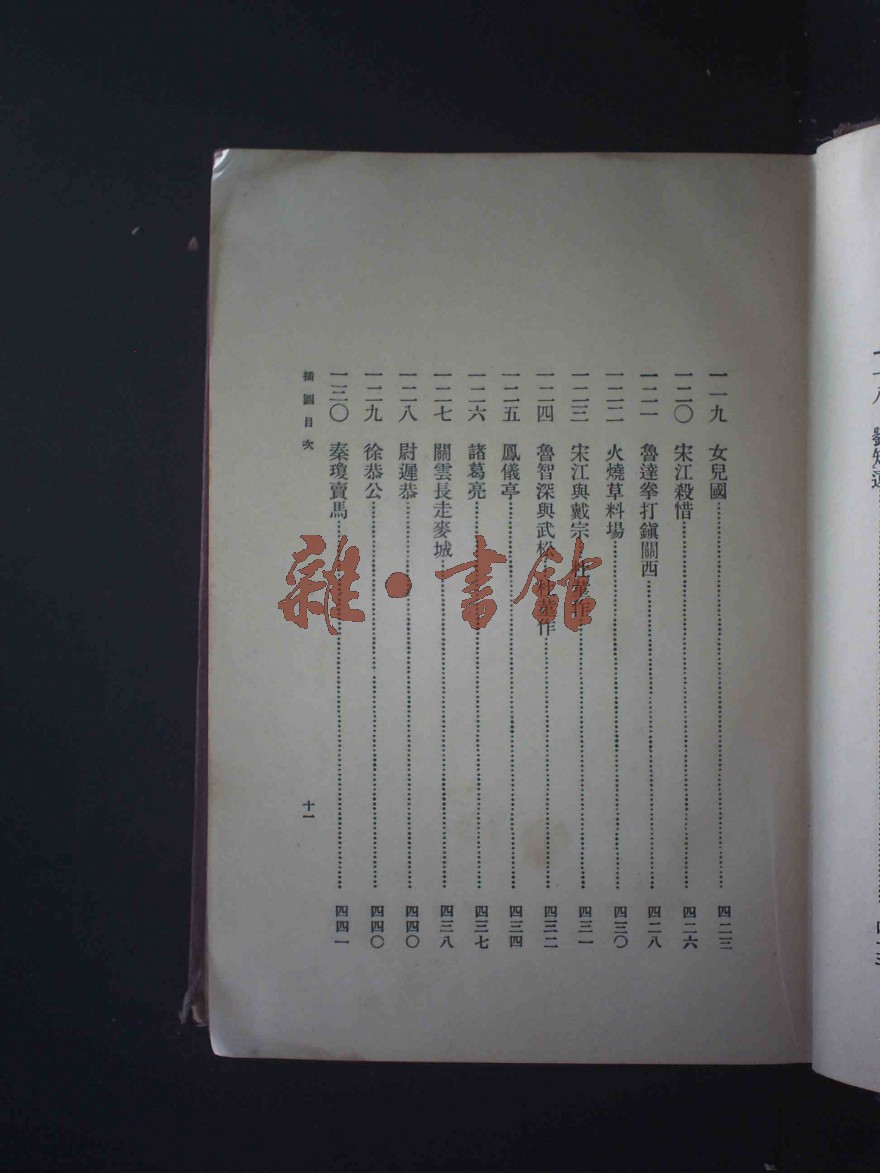 一一八 劉知遠
一一九 女兒國 四二三
一二〇 宋江殺惜 四二六
一二一 魯達拳打鎭關西 四二八
一二二 火燒草料場 四三〇
一二三 宋江與戴宗 杜堇作 四三一
一二四 魯智深與武松 杜堇作 四三二
一二五 鳳儀亭 四三四
一二六 諸葛亮 四三七
一二七 關雲長走麥城 四三八
一二八 尉遲恭 四四〇
一二九 徐恭公 四四〇
一三〇 秦瓊賣馬 四四一
插圖目次
十一
雜·書館